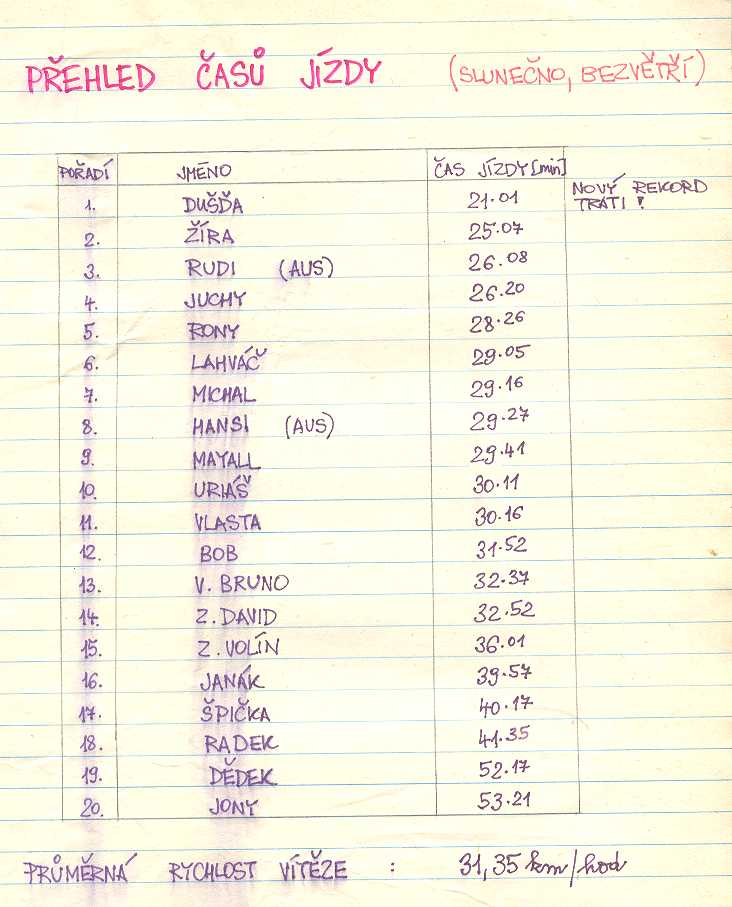 PŘEHLED ČASŮ JÍZDY (SLUNEČNO, BEZVĚTŘÍ)
POŘADÍ JMÉNO ČAS JÍZDY [min]
1. DUŠĎA 21.01 NOVÝ REKORD
TRATI!
2. ŽÍRA 25.07
3. RUDI (AUS) 26.08
4. JUCHY 26.20
5. RONY 28.26
6. LAHVÁČ 29.05
7. MICHAL 29.16
8. HANSI (AUS) 29.27
9. MAYALL 29.41
10. URIÁŠ 30.11
11. VLASTA 30.16
12. BOB 31.52
13. V. BRUNO 32.37
14. Z. DAVID 32.52
15. Z. VOLÍN 36.01
16. JANÁK 39.57
17. ŠPIČKA 40.17
18. RADEK 41.35
19. DĚDEK 52.17
20. JONY 53.21
PRŮMĚRNÁ RYCHLOST VÍTĚZE : 31,35 km/hod